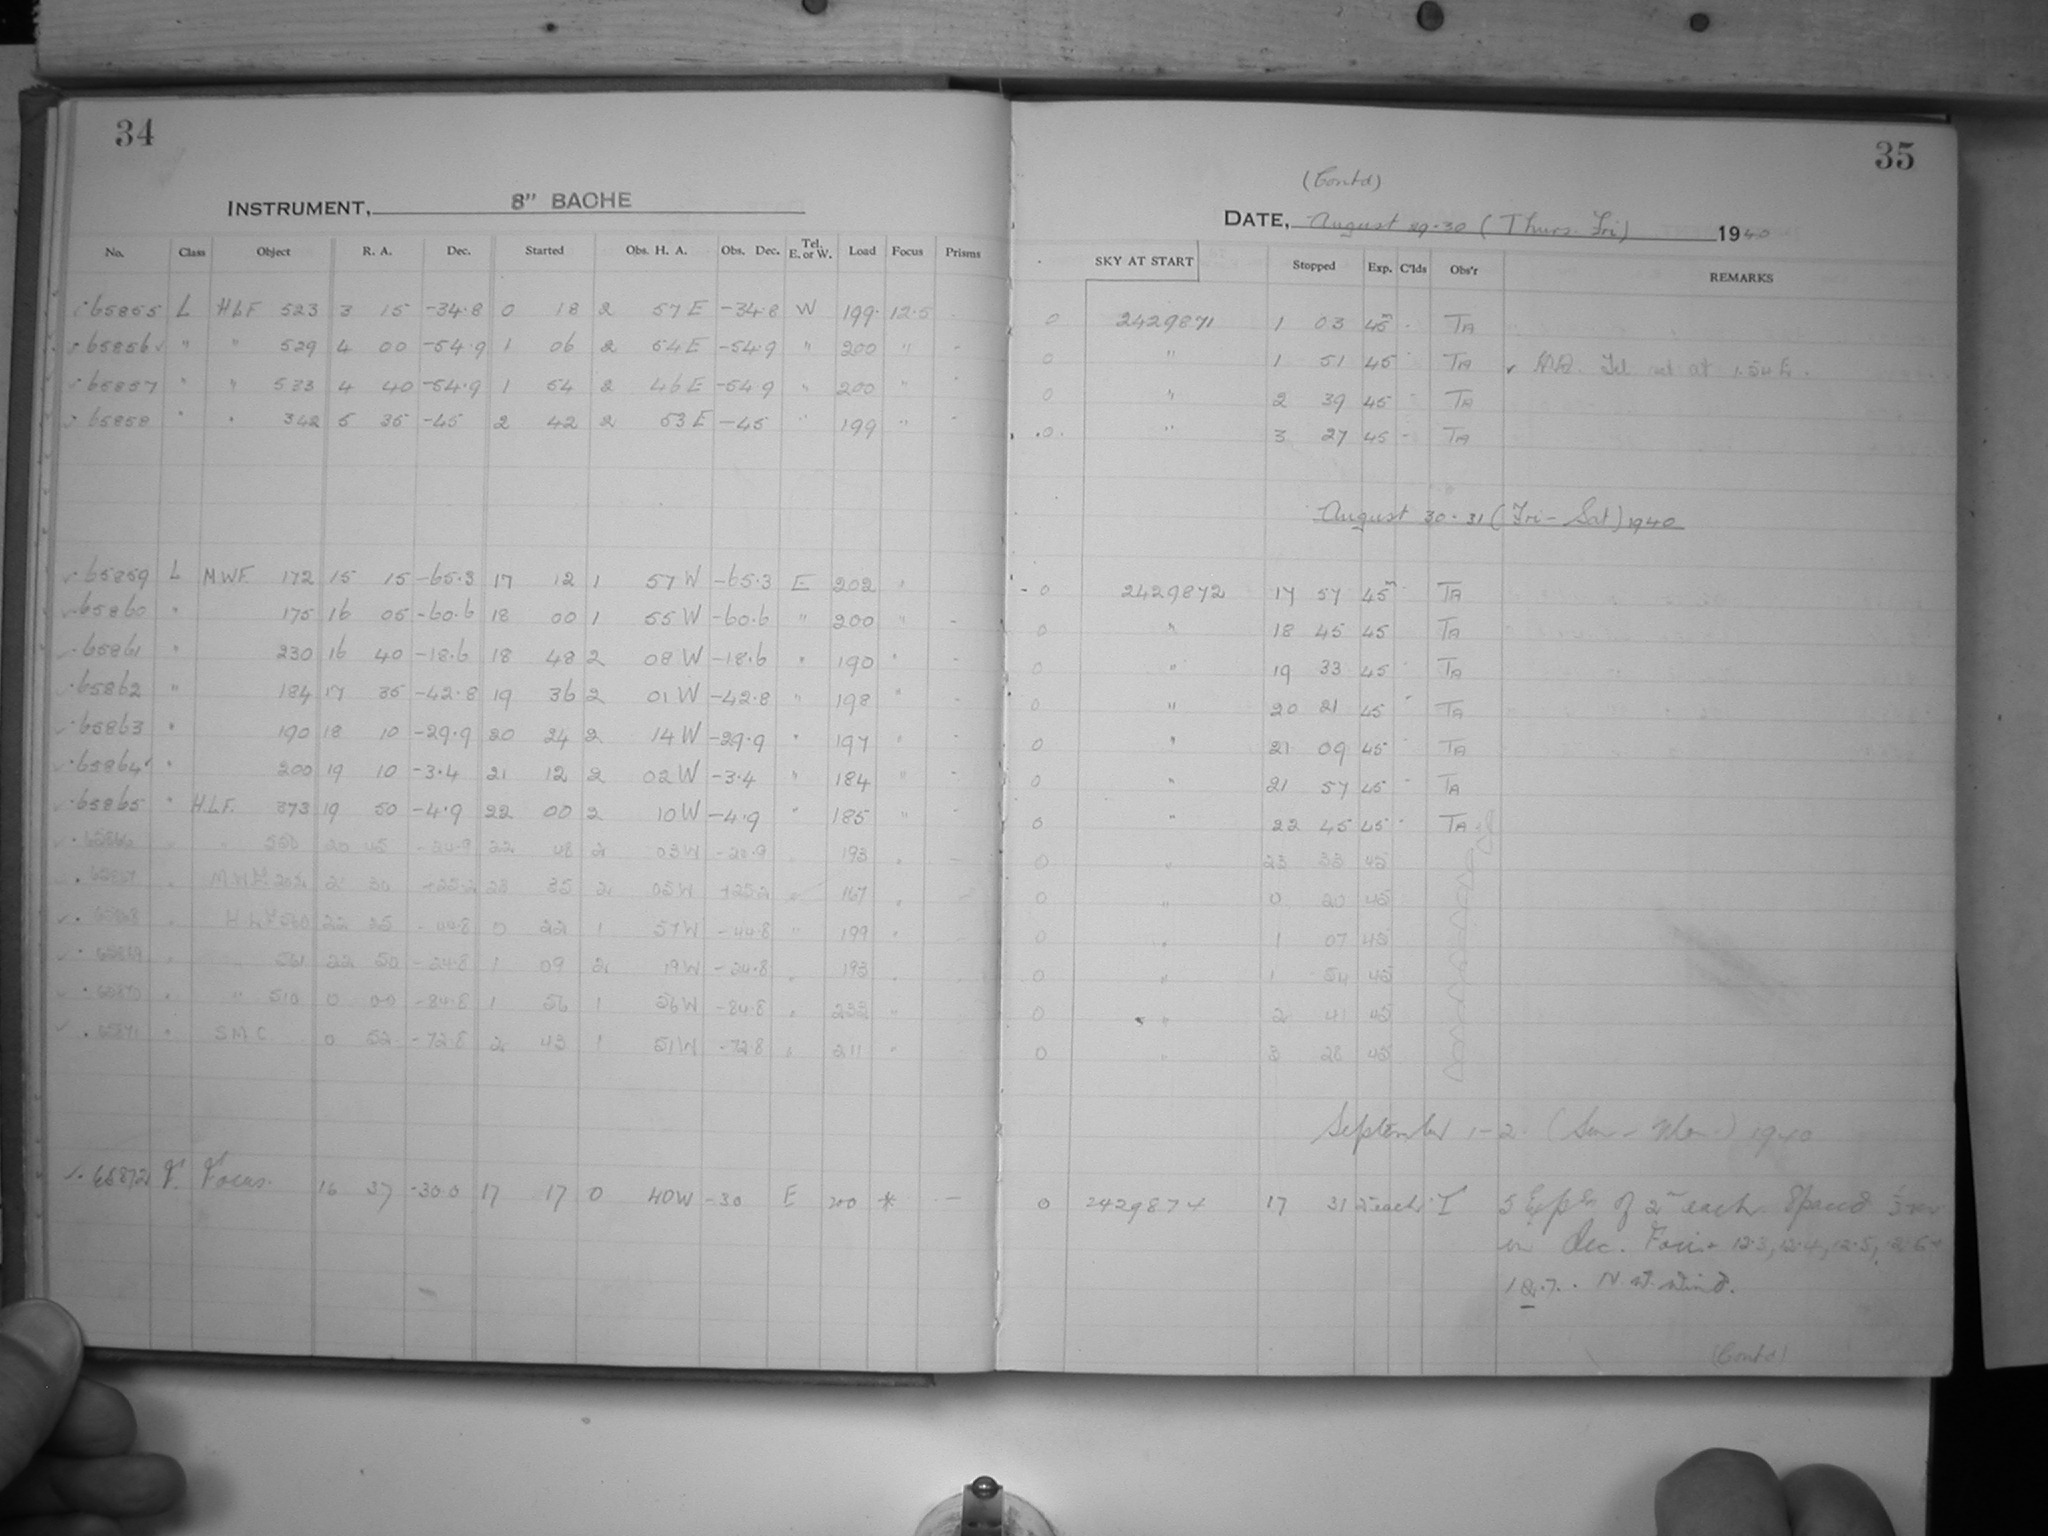 34
INSTRUMENT, 8" BACHE
No. Class Object R. A. Dec. Started Obs. H. A. Obs. Dec. Tel. E. or W. Load Focus Prisms
65855 L HLF 523 3 15 -34.8 0 18 2 57 E -34.8 W 199 12.5
65856 " " 529 4 00 -54.9 1 06 2 54 E -54.9 " 200 " -
65857 " " 533 4 40 -54.9 1 54 2 46 E -54.9 " 200 "
65858 " " 342 5 35 -45 2 42 2 53 E -45 " 199 " -
65859 L M.W.F. 172 15 15 -65.3 17 12 1 57 W -65.3 E 202 "
65860 " 175 16 05 -60.6 18 00 1 55 W -60.6 " 200 " -
65861 " 230 16 40 -18.6 18 48 2 08 W -18.6 " 190 " -
65862 " 184 17 35 -42.8 19 36 2 01 W -42.8 " 198 " -
65863 " 190 18 10 -29.9 20 24 2 14 W -29.9 " 197 " -
65864 " 200 19 10 -3.4 21 12 2 02 W -3.4 " 184 " -
65865 " H.L.F. 373 19 50 -4.9 22 00 2 10 W -4.9 " 185 " -
65866 " " 550 20 45 22 48 2 03 W 193 " -
65867 " M.W.F. 30 23 35 2 05 W +25.2 " 167 "
65868 " H.L.F. 560 22 35 -44.8 0 22 1 57 W -44.8 " 199 "
65869 " 561 22 50 -24.8 1 09 2 19 W -24.8 " 193 "
65870 " " 510 0 00 -84.8 1 56 1 56 W -84.8 " 233 "
65871 " S M C 0 52 -72.8 2 43 1 51 W -72.8 " 211 "
65872 F Focus. 16 37 -30.0 17 17 0 40 W -30 E 200 * -
35
(Contd)
DATE, August 29-30 (Thurs-Fri) 1940
SKY AT START Stopped Exp. C'lds Obs'r REMARKS
0 2429871 1 03 45m - TA
0 " 1 51 45 - TA Tel at 1.54
0 " 2 39 45 - TA
0 " 3 27 45 - TA
August 30-31 (Fri-Sat) 1940
0 2429872 17 57 45m - TA
0 " 18 45 45 TA
0 " 19 33 45 - TA
0 " 20 21 45 - TA
0 " 21 09 45 - TA
0 " 21 57 45 - TA
0 " 22 45 45 - TA
0 " 23 33 45
0 " 0 20 45
0 " 1 07 45
0 " 1 54 45
0 " 2 41 45
0 " 3 28 45
September 1-2. (Sun-Mon.) 1940
0 2429874 17 31 2m each 5 Exps of 2m each. Spaced
in Dec. Foci 12.3, 12.4, 12.5, 12.6 +
12.7. wind.
(Contd)